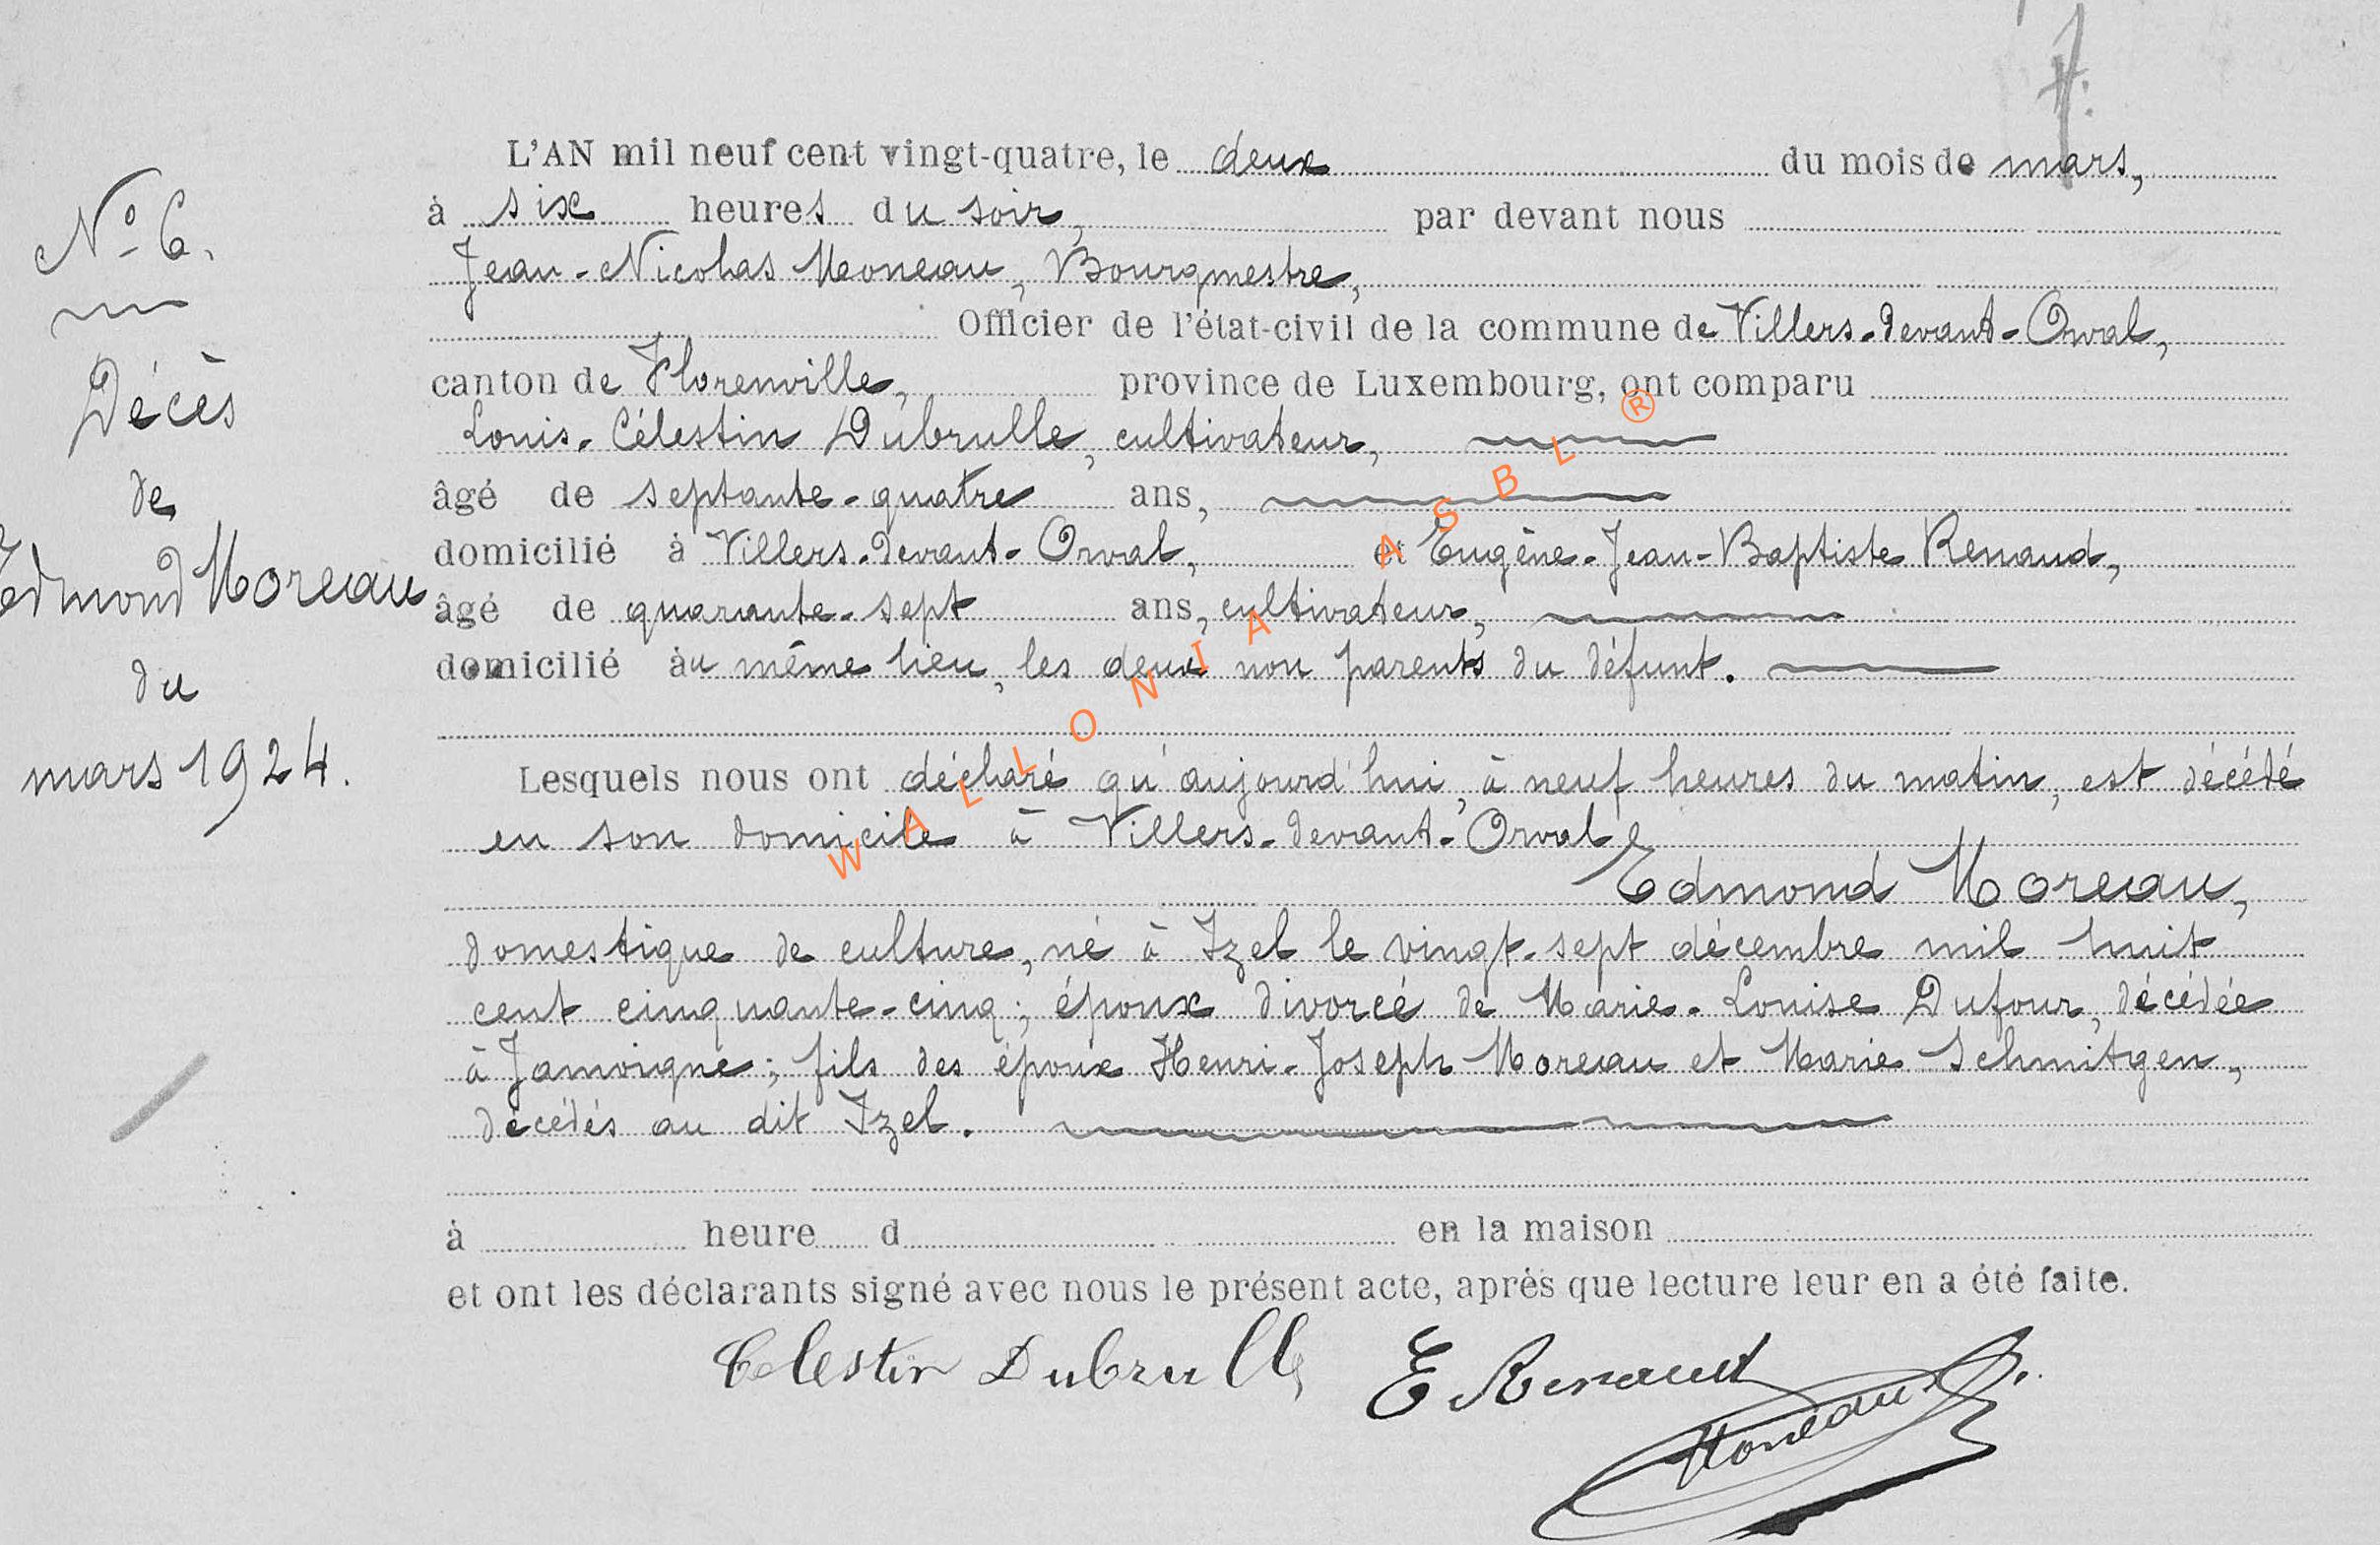 7.
L'AN mil neuf cent vingt-quatre, le deux du mois de mars,
à six heures du soir, par devant nous
Jean-Nicolas Moneau, Bourgmestre,
Officier de l'état-civil de la commune de Villers-devant-Orval,
canton de Florenville, province de Luxembourg, ont comparu
Louis-Célestin Dubrulle, cultivateur,
âgé de septante-quatre ans,
domicilié à Villers-devant-Orval, et Eugène-Jean-Baptiste Renaud,
âgé de quarante-sept ans, cultivateur,
domicilié au même lieu, les deux non parents du défunt.
Lesquels nous ont déclaré qu'aujourd'hui, à neuf heures du matin, est décédé
en son domicile à Villers-devant-Orval
Edmond Moreau,
domestique de culture, né à Izel le vingt-sept décembre mil huit
cent cinquante-cinq; époux divorcé de Marie-Louise Dufour, décédée
à Jamoigne; fils des époux Henri-Joseph Moreau et Marie Schmitgen,
décédés au dit Izel.
à heure d en la maison
et ont les déclarants signé avec nous le présent acte, après que lecture leur en a été faite.
Celestin Dubrulle E Renaud
Moneau
N° 6.
Décès
de
Edmond Moreau
du
mars 1924.
WALLONIA ASBL ®